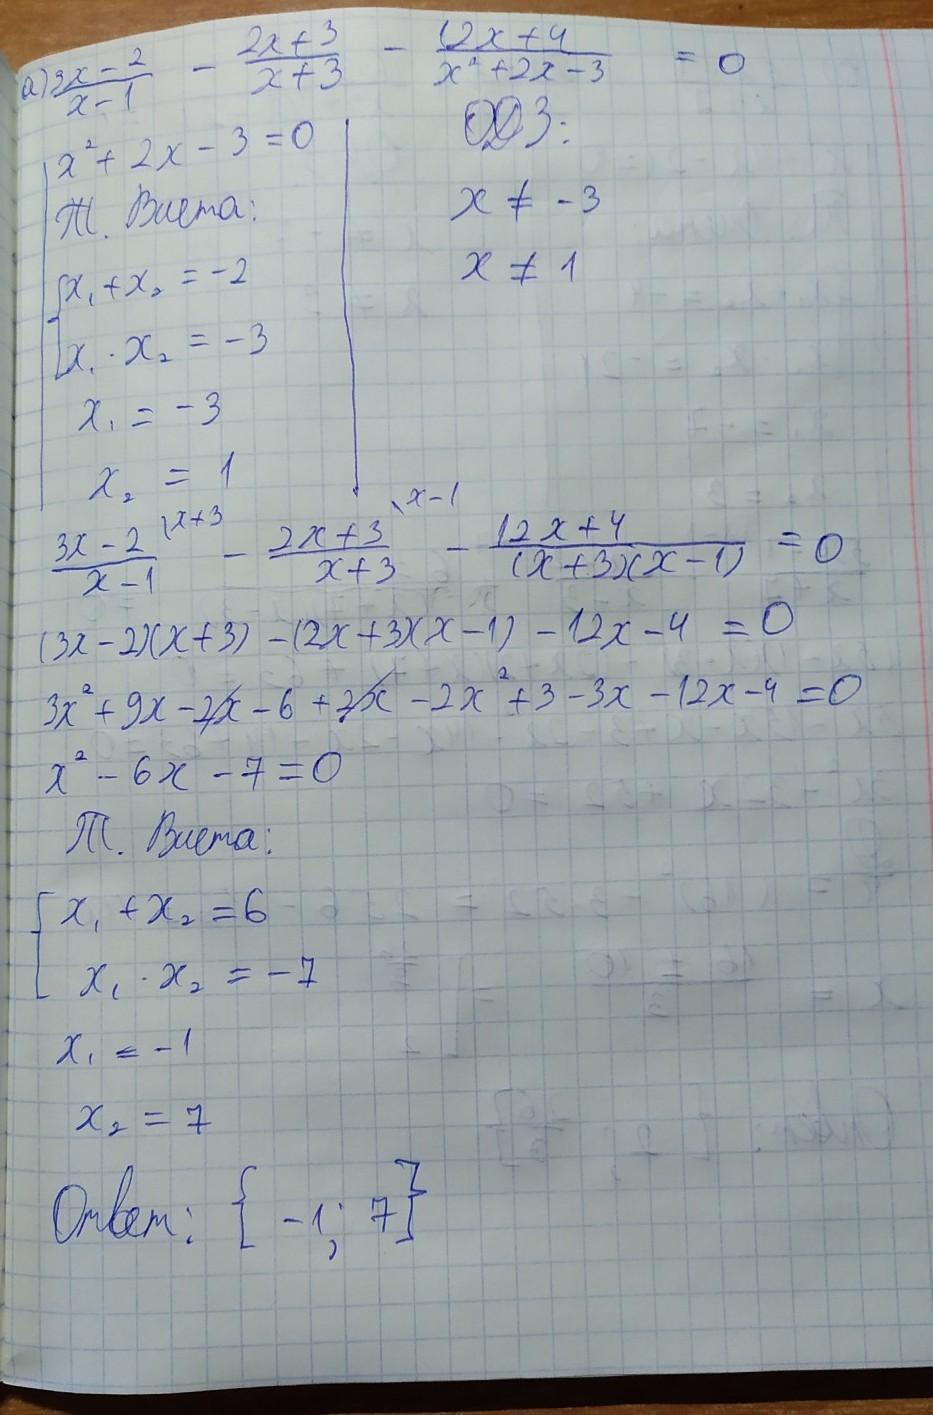 а) (3x-2)/(x-1) - (2x+3)/(x+3) - (12x+4)/(x²+2x-3) = 0
x²+2x-3=0
Т. Виета:
x₁+x₂=-2
x₁·x₂=-3
x₁=-3
x₂=1
ОДЗ:
x≠-3
x≠1
(3x-2)/(x-1) \x+3 - (2x+3)/(x+3) \x-1 - (12x+4)/((x+3)(x-1)) = 0
(3x-2)(x+3)-(2x+3)(x-1)-12x-4=0
3x²+9x-2x-6+2x-2x²+3-3x-12x-4=0
x²-6x-7=0
Т. Виета:
x₁+x₂=6
x₁·x₂=-7
x₁=-1
x₂=7
Ответ: {-1; 7}